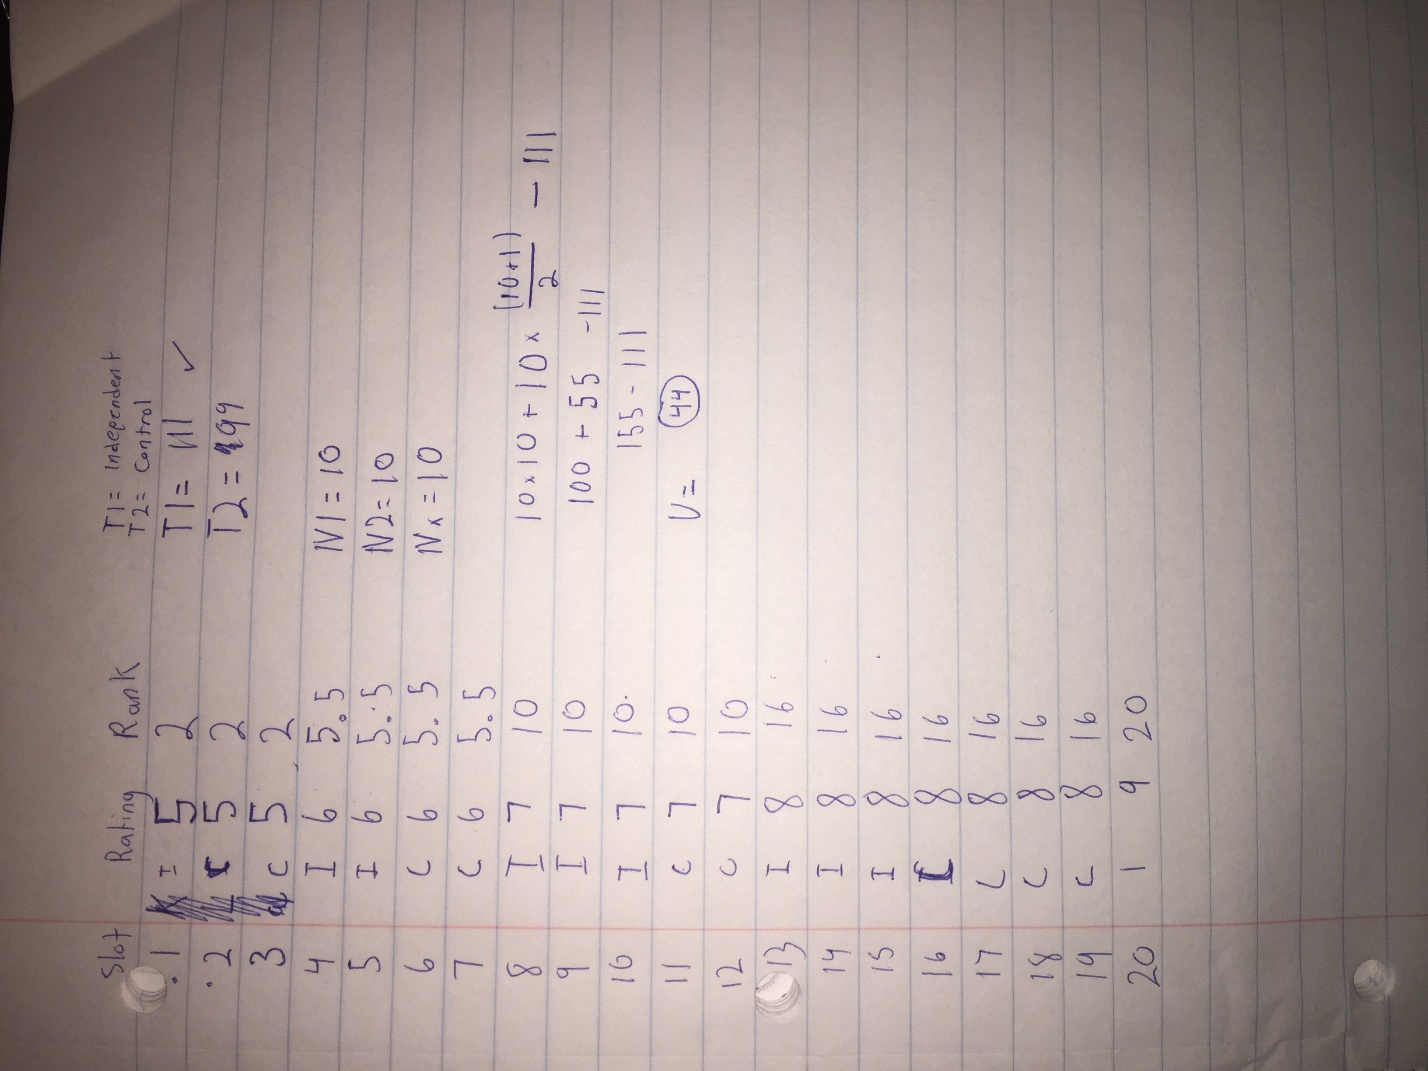 Slot Rating Rank
1 I 5 2
2 C 5 2
3 C 5 2
4 I 6 5.5
5 I 6 5.5
6 C 6 5.5
7 C 6 5.5
8 I 7 10
9 I 7 10
10 I 7 10
11 C 7 10
12 C 7 10
13 I 8 16
14 I 8 16
15 I 8 16
16 8 16
17 C 8 16
18 C 8 16
19 C 8 16
20 I 9 20
T1 = Independent
T2 = Control
T1 = 111 ✓
T2 = 99
N1 = 10
N2 = 10
Nx = 10
10 x 10 + 10 x (10+1)/2 - 111
100 + 55 - 111
155 - 111
U = 44